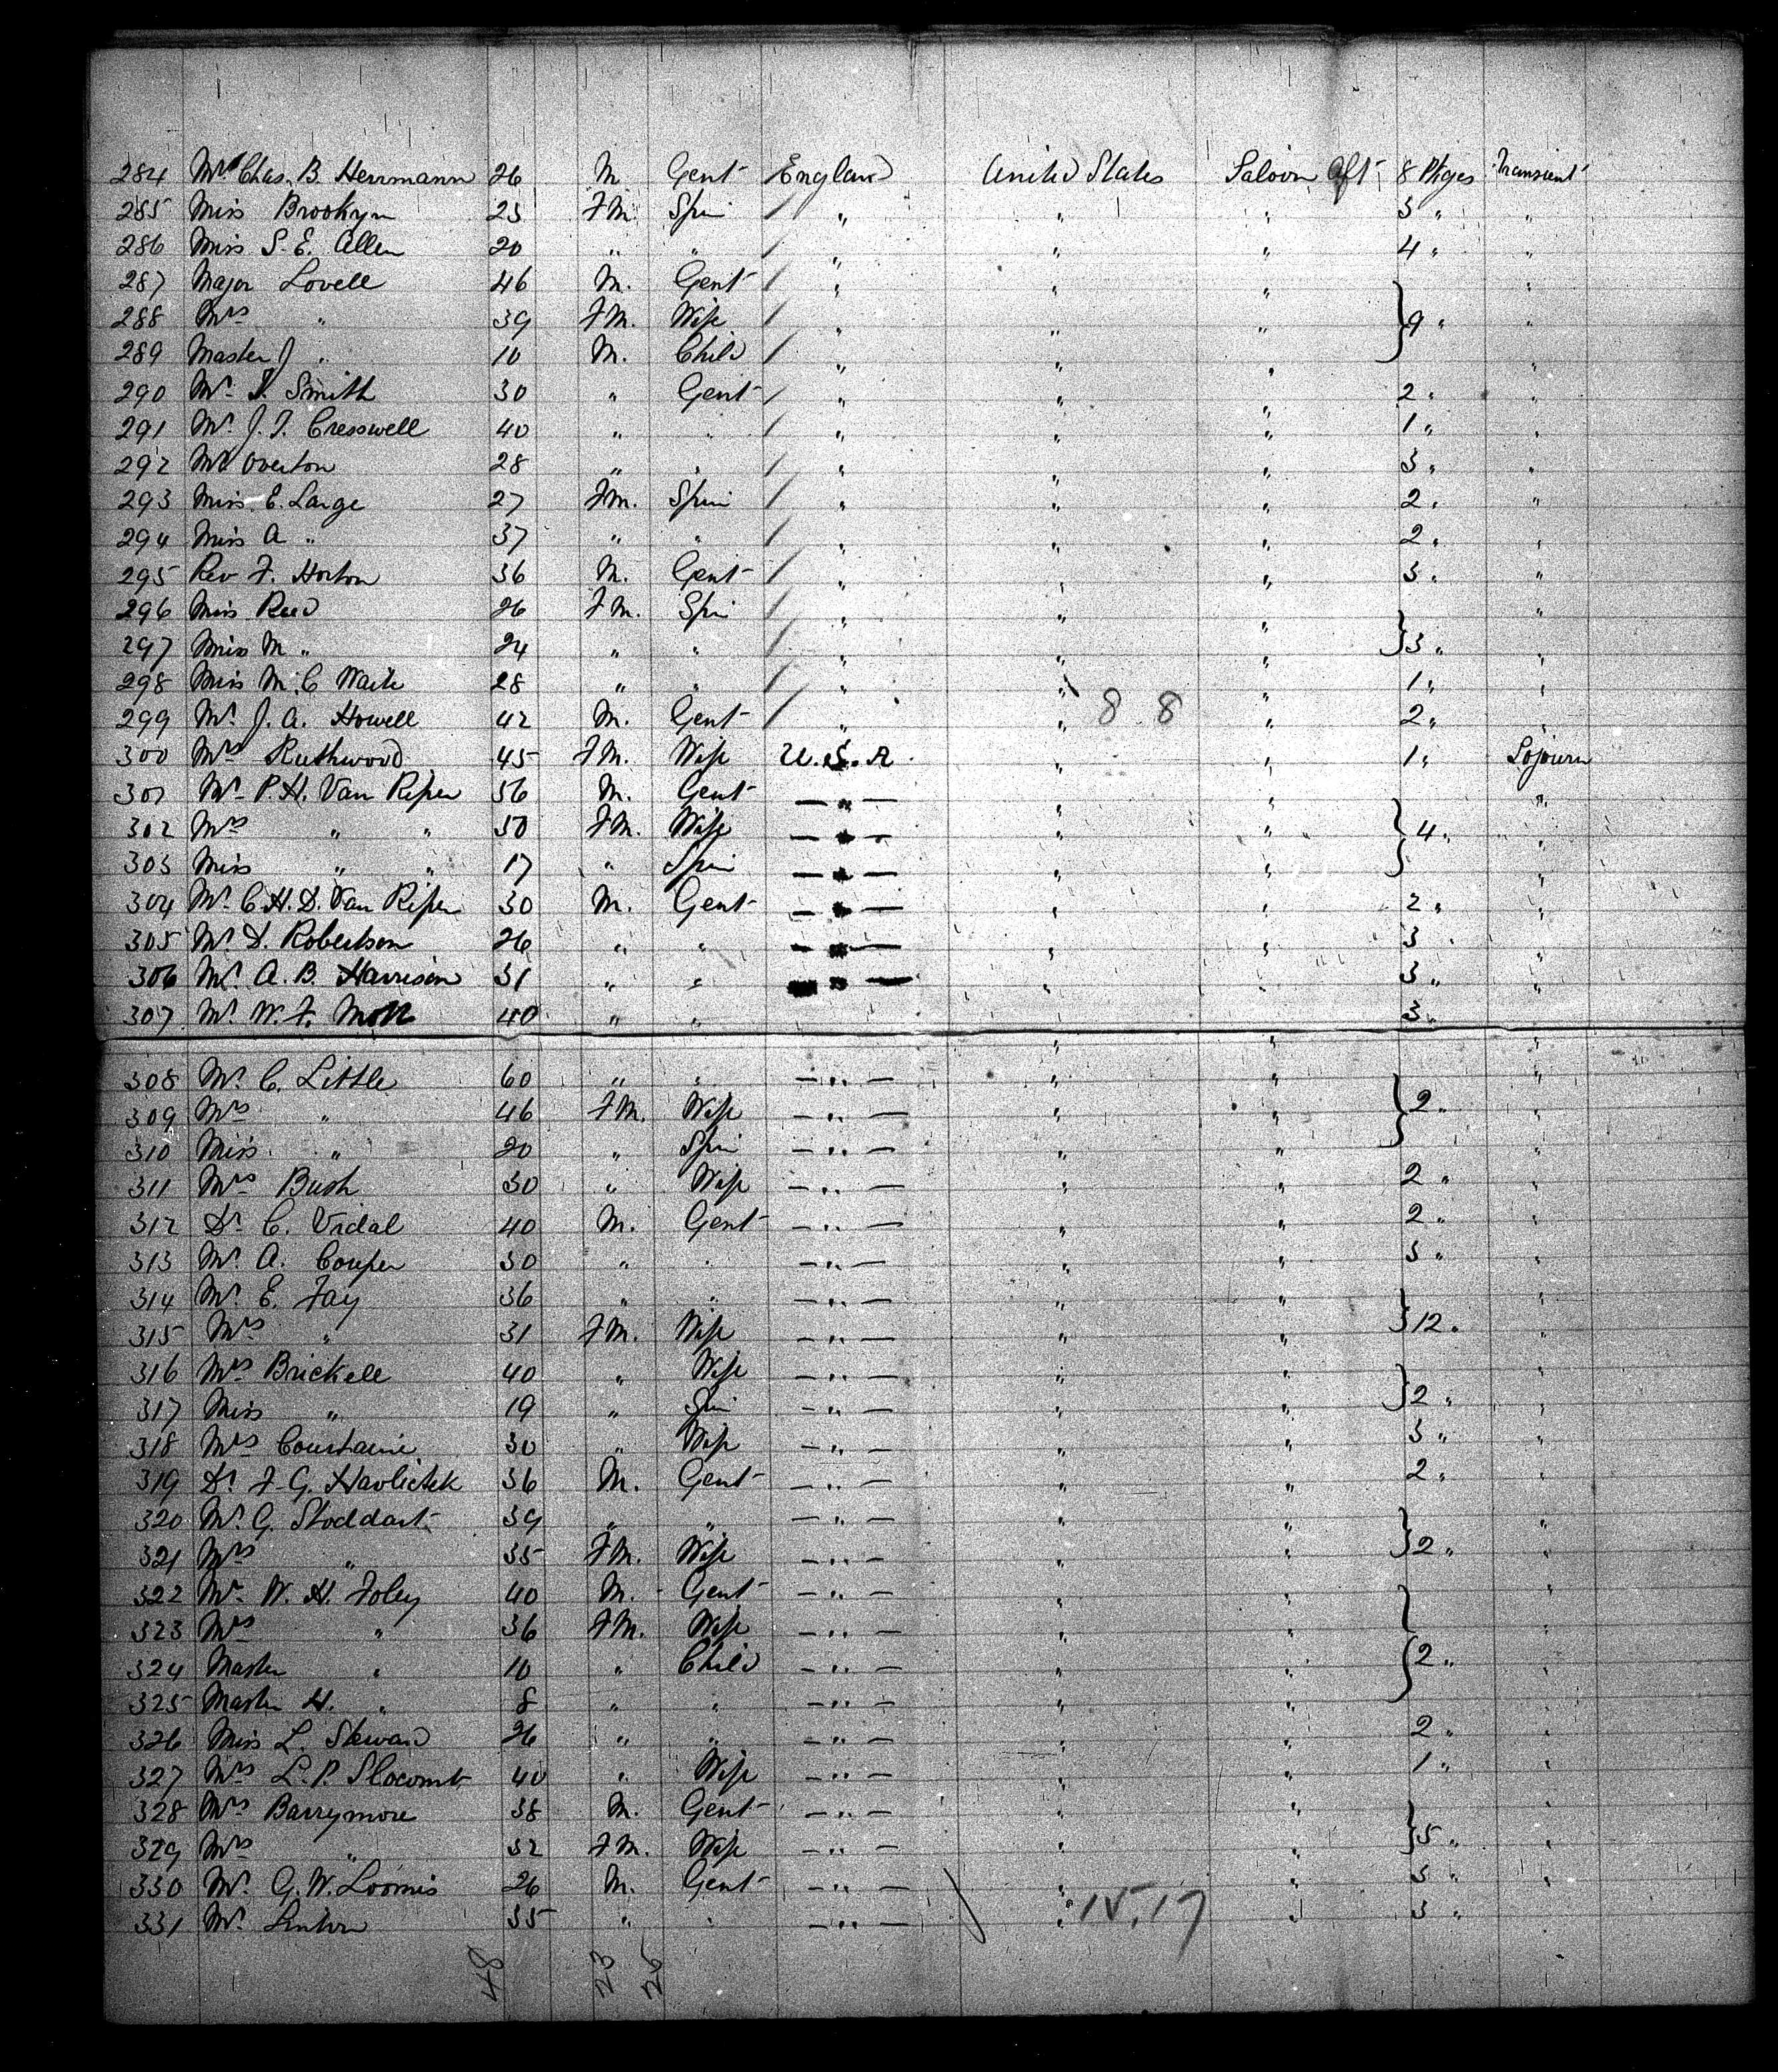 284 Mr Chas. B. Herrmann 26 M Gent England United States Saloon Aft 8 Pkges Transient
285 Miss Brookyn 23 FM. Spin / „ „ „ 3 „ „
286 Miss S. E. Allen 20 „ „ / „ „ „ 4 „ „
287 Major Lovell 46 M. Gent / „ „ „ „
288 Mrs „ 39 FM. Wife / „ „ „ } 9 „ „
289 Master J „ 10 M. Child / „ „ „ „
290 Mr. T. Smith 30 „ Gent / „ „ „ 2 „ „
291 Mr. J. T. Cresswell 40 „ „ / „ „ „ 1 „ „
292 Mr Overton 28 „ „ / „ „ „ 3 „ „
293 Miss E. Large 27 FM. Spin / „ „ „ 2 „ „
294 Miss A „ 37 „ „ / „ „ „ 2 „ „
295 Rev F. Horton 36 M. Gent / „ „ „ 3 „ „
296 Miss Reed 26 FM. Spin / „ „ „ „
297 Miss M „ 24 „ „ / „ „ „ } 3 „ „
298 Miss M. C Waite 28 „ „ / „ „ „ 1 „ „
299 Mr. J. A. Howell 42 M. Gent / „ „ 8 8 „ 2 „ „
300 Mrs Ruthwood 45 FM. Wife U.S.A. „ „ 1 „ Sojourn
301 Mr. P. H. Van Riper 56 M. Gent — „ — „ „ „
302 Mrs „ „ 50 FM. Wife — „ — „ „ } 4 „ „
303 Miss „ „ 17 „ Spin — „ — „ „ „
304 Mr. C. H. D. Van Riper 30 M. Gent — „ — „ „ 2 „ „
305 Mr D. Robertson 26 „ „ — „ — „ „ 3 „ „
306 Mr. A. B. Harrison 31 „ „ — „ — „ „ 3 „ „
307 Mr. W. F. Mott 40 „ „ „ „ 3 „ „
308 Mr. C. Little 60 „ „ — „ — „ „ „
309 Mrs „ 46 FM. Wife — „ — „ „ } 2 „ „
310 Miss „ 20 „ Spin — „ — „ „ „
311 Mrs Bush 30 „ Wife — „ — „ „ 2 „ „
312 Dr C. Vidal 40 M. Gent — „ — „ „ 2 „ „
313 Mr. A. Couper 30 „ „ — „ — „ „ 3 „ „
314 Mr. E. Fay 36 „ „ — „ — „ „ „
315 Mrs „ 31 FM. Wife — „ — „ „ } 12 „ „
316 Mrs Brickell 40 „ Wife — „ — „ „ „
317 Miss „ 19 „ Spin — „ — „ „ } 2 „ „
318 Mrs 30 „ Wife — „ — „ „ 3 „ „
319 Dr. F. G. Havlichek 36 M. Gent — „ — „ „ 2 „ „
320 Mr. G. Stoddart 39 „ „ — „ — „ „ „
321 Mrs „ 35 FM. Wife — „ — „ „ } 2 „ „
322 Mr. W. H. Foley 40 M. Gent — „ — „ „ „
323 Mrs „ 36 FM. Wife — „ — „ „ „
324 Master „ 10 „ Child — „ — „ „ } 2 „ „
325 Master H. „ 8 „ „ — „ — „ „
326 Miss L. Steward 26 „ „ — „ — „ „ 2 „ „
327 Mrs L. P. Slocomb 40 „ Wife — „ — „ „ 1 „ „
328 Mrs Barrymore 38 M. Gent — „ — „ „ „
329 Mrs „ 32 FM. Wife — „ — „ „ } 5 „ „
330 Mr. G. W. Loomis 26 M. Gent — „ — „ „ 3 „ „
331 Mr. Linton 35 „ „ — „ — „ 15,17 „ 3 „
48 23 25